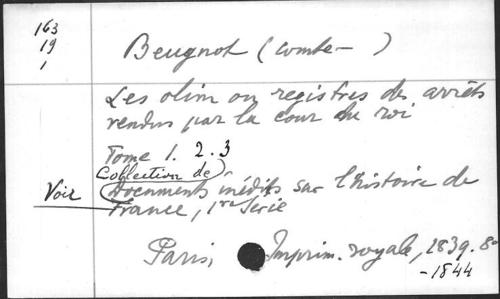 163
19
1
Beugnot (comte- )
Les olim ou registres des arrêts
rendus par la cour du roi
Tome 1. 2. 3
Collection de
Voir Documents inédits sur l'histoire de
France, 1re Série
Paris, Imprim. royale, 1839. 8o
-1844